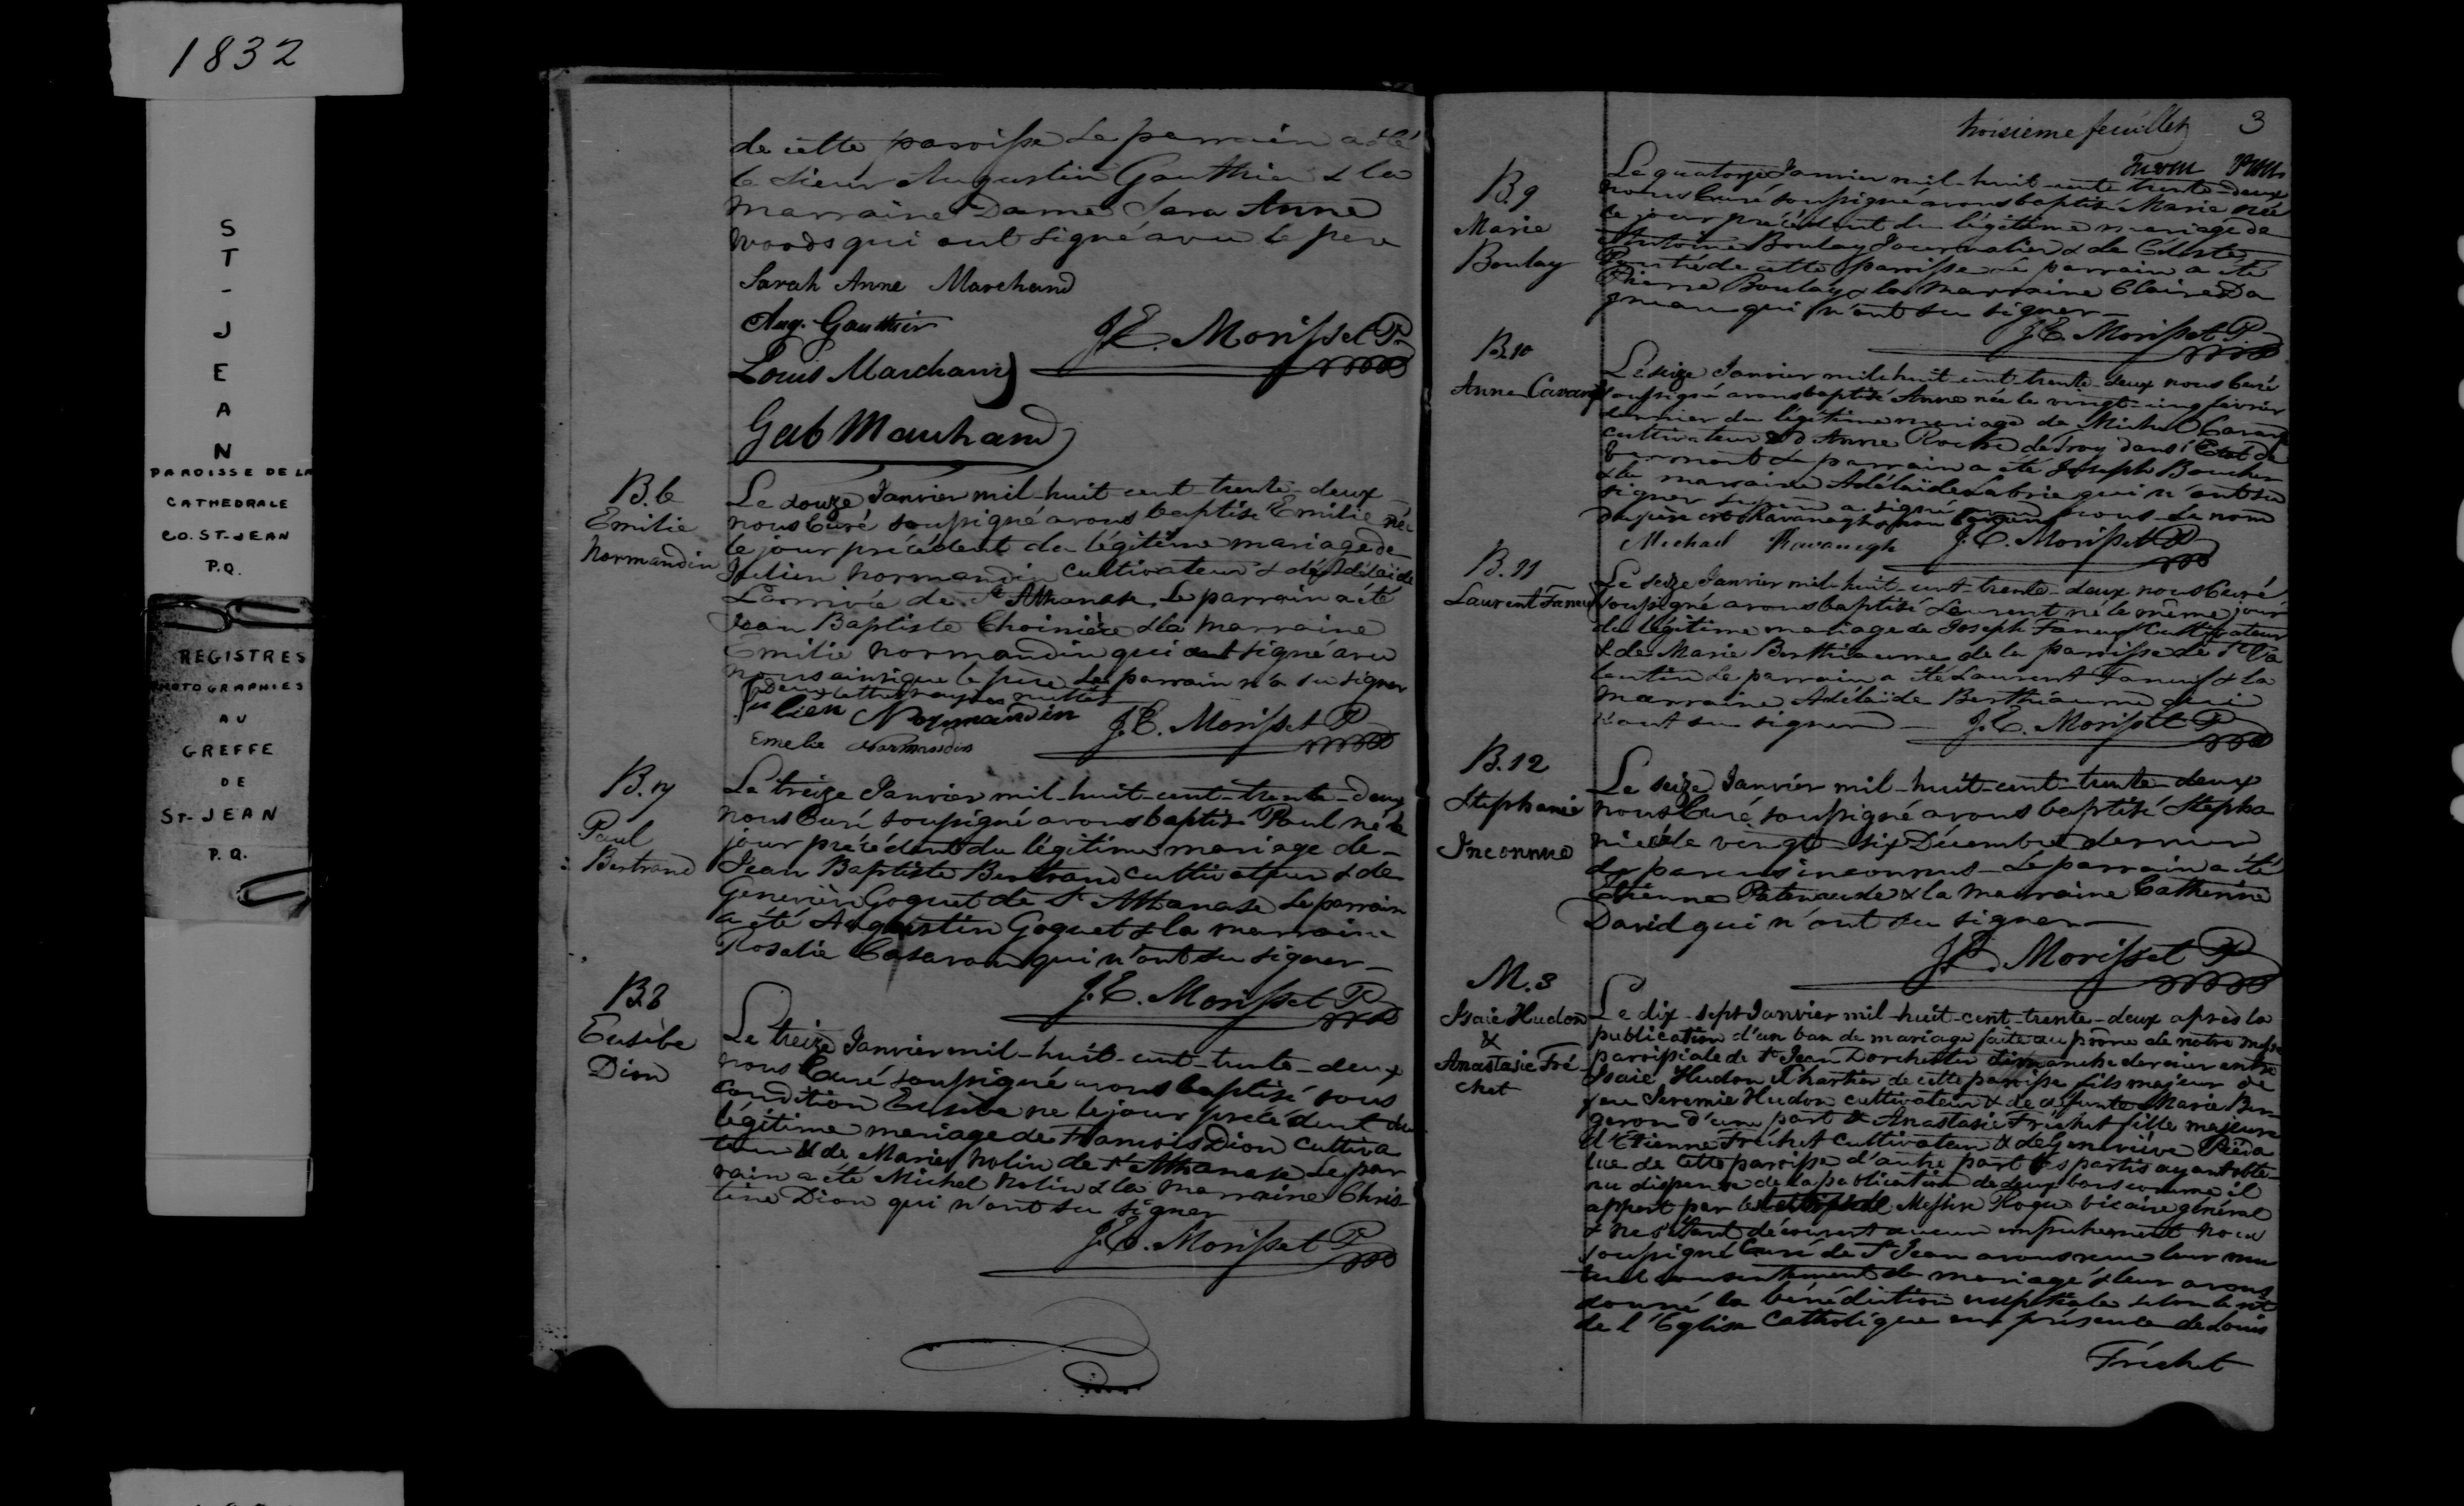 1832
ST-JEAN
PAROISSE DE LA
CATHEDRALE
CO. ST-JEAN
P.Q.
REGISTRES
PHOTOGRAPHIES
AU
GREFFE
DE
ST-JEAN
P.Q.
de cette paroisse Le parrain a été
le sieur Augustin Gauthier & la
marraine Dame Sara Anne
Woods qui ont signé avec le père
Sarah Anne Marchand
Aug. Gauthier
J.E. Morisset P.
Louis Marchand
Gab Marchand
B.6
Emilie
Normandin
Le douze Janvier mil-huit-cent-trente-deux
nous Curé soussigné avons baptisé Emilie née
le jour précédent du légitime mariage de
Julien Normandin cultivateur & d'Adélaïde
Larrivée de St Athanase. Le parrain a été
Jean Baptiste Choinière & la marraine
Emilie Normandin qui a signé avec
nous ainsi que le père Le parrain n'a su signer
Deux lettres rayées nulles
Julien Normandin
J.E. Morisset P.
Emelie Normandin
B.7
Paul
Bertrand
Le treize Janvier mil-huit-cent-trente-deux
nous Curé soussigné avons baptisé Paul né le
jour précédent du légitime mariage de
Jean Baptiste Bertrand cultivateur & de
Geneviève Goguet de St Athanase Le parrain
a été Augustin Goguet & la marraine
Rosalie Casavan qui n'ont su signer
J.E. Morisset P.
B.8
Eusèbe
Dion
Le treize Janvier mil-huit-cent-trente-deux
nous Curé soussigné avons baptisé sous
condition Eusèbe né le jour précédent du
légitime mariage de François Dion cultiva
teur & de Marie Nolin de St Athanase Le par
rain a été Michel Nolin & la marraine Chris-
tine Dion qui n'ont su signer
J.E. Morisset P.
troisième feuillet 3
B.9
Marie
Boulay
Le quatorze Janvier mil-huit-cent-trente-deux
nous Curé soussigné avons baptisé Marie née
le jour précédent du légitime mariage de
Antoine Boulay Journalier & de Céleste
de cette paroisse Le parrain a été
Pierre Boulay & la marraine Claire Da
gneau qui n'ont su signer
J.E. Morisset P.
B.10
Anne Cavanagh
Le seize Janvier mil-huit-cent-trente-deux nous Curé
soussigné avons baptisé Anne née le vingt-cinq février
dernier du légitime mariage de Michel
cultivateur & d'Anne Roche de Troy dans l'Etat de
Vermont Le parrain a été Joseph Boucher
& la marraine Adélaïde Labrie qui n'ont su
signer Le père a signé avec nous Le nom
du père est Kavanagh & non
Michael Kavanagh
J.E. Morisset P.
B.11
Laurent Faneuf
Le seize Janvier mil-huit-cent-trente-deux nous Curé
soussigné avons baptisé Laurent né le même jour
du légitime mariage de Joseph Faneuf Cultivateur
& de Marie Berthiaume de la paroisse de St Va
lentin Le parrain a été Laurent Faneuf & la
marraine Adélaïde Berthiaume qui
n'ont su signer
J.E. Morisset P.
B.12
Stéphanie
Inconnue
Le seize Janvier mil-huit-cent-trente-deux
nous Curé soussigné avons baptisé Stépha
nie née le vingt-six Décembre dernier
de parens inconnus - Le parrain a été
Etienne Patenaude & la marraine Catherine
David qui n'ont su signer
J.E. Morisset P.
M.3
Isaie Hudon
&
Anastasie Fré-
chet
Le dix-sept Janvier mil-huit-cent-trente-deux après la
publication d'un ban de mariage faite au prône de notre messe
paroissiale de St Jean Dorchester dimanche dernier entre
Isaie Hudon Chartier de cette paroisse fils majeur de
feu Jeremie Hudon cultivateur & de defunte Marie Ber-
geron d'une part & Anastasie Fréchet fille majeure
d'Etienne Fréchet Cultivateur & de Geneviève Réda
lue de cette paroisse d'autre part les partis ayant obte-
nu dispense de la publication de deux bans comme il
appert par Messire Roque vicaire général
& ne s'étant découvert aucun empêchement nous
soussigné Curé de St Jean avons reçu leur mu
tuel consentement de mariage & leur avons
donné la bénédiction nuptiale selon le rit
de l'Eglise Catholique en présence de Louis
Fréchet